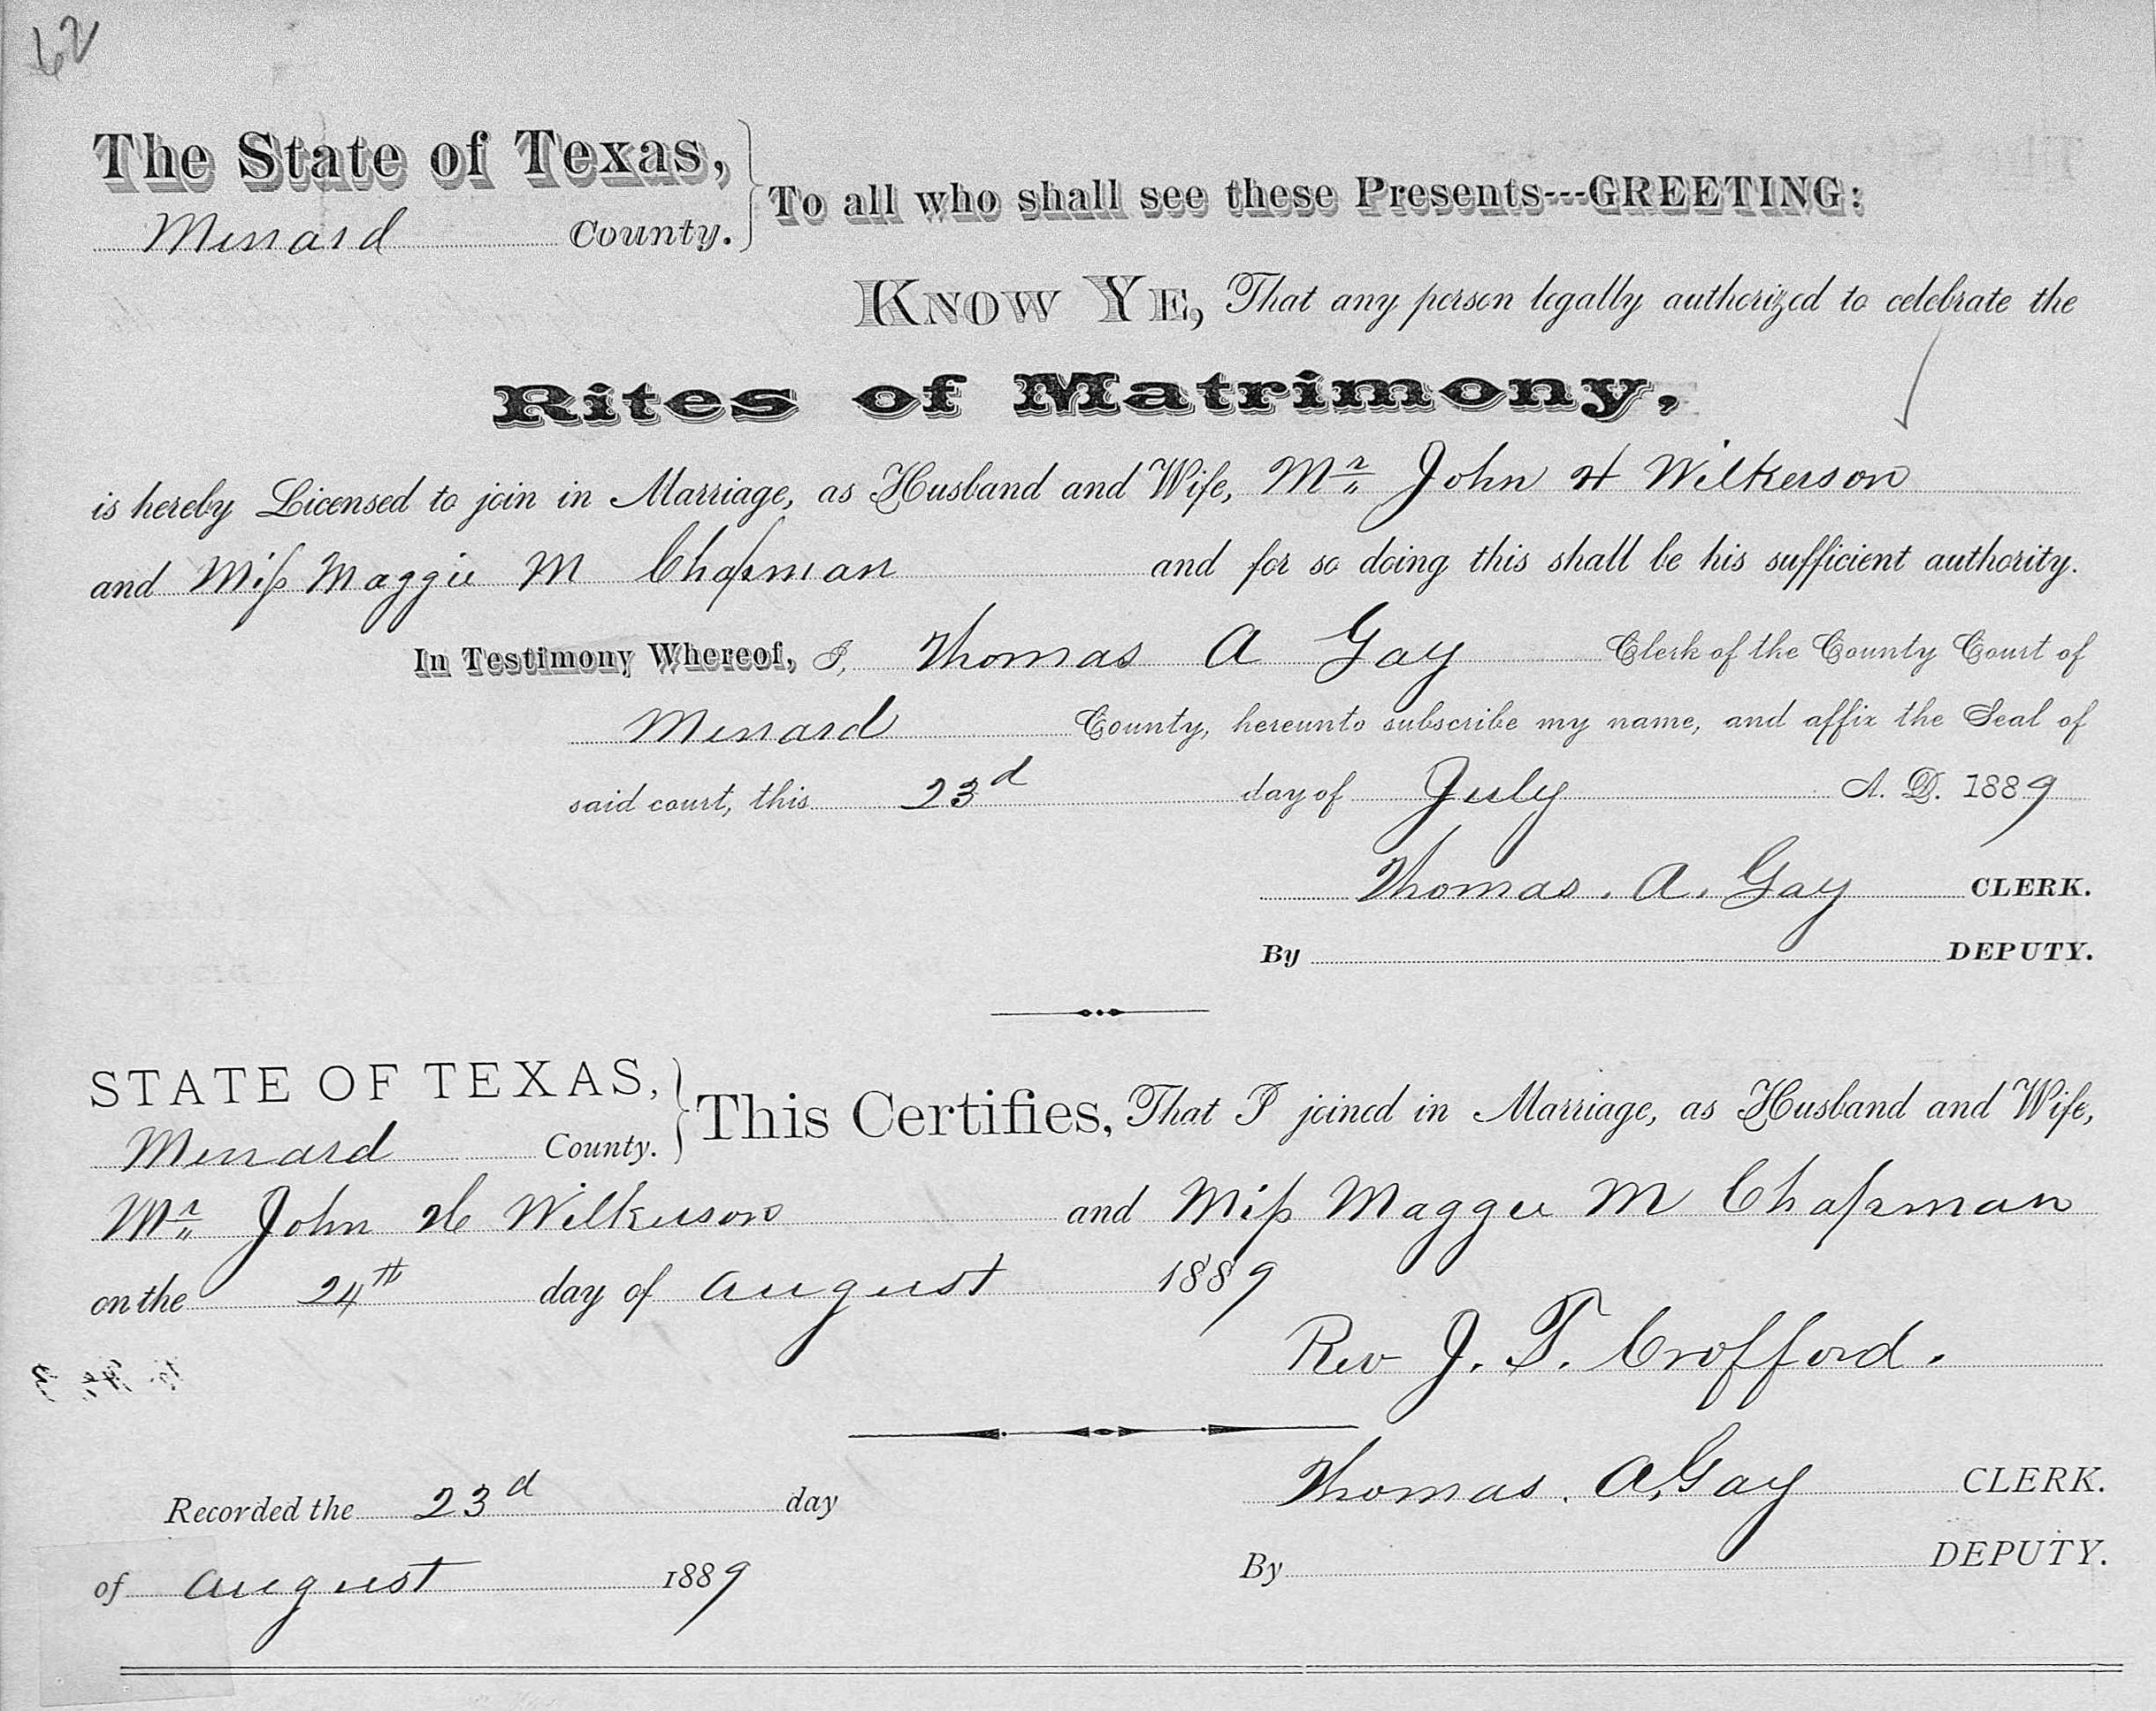 62
The State of Texas,
Menard County.
To all who shall see these Presents---GREETING:
KNOW YE, That any person legally authorized to celebrate the
Rites of Matrimony,
is hereby Licensed to join in Marriage, as Husband and Wife, Mr John H Wilkerson
and Miss Maggie M Chapman and for so doing this shall be his sufficient authority.
In Testimony Whereof, I, Thomas A Gay Clerk of the County Court of
Menard County, hereunto subscribe my name, and affix the Seal of
said court, this 23d day of July A. D. 1889
Thomas. A. Gay CLERK.
By DEPUTY.
STATE OF TEXAS,
Menard County.
This Certifies, That I joined in Marriage, as Husband and Wife,
Mr John H Wilkerson and Miss Maggie M Chapman
on the 24th day of August 1889
Rev J. T. Crofford.
Recorded the 23d day
of August 1889
Thomas. A. Gay CLERK.
By DEPUTY.